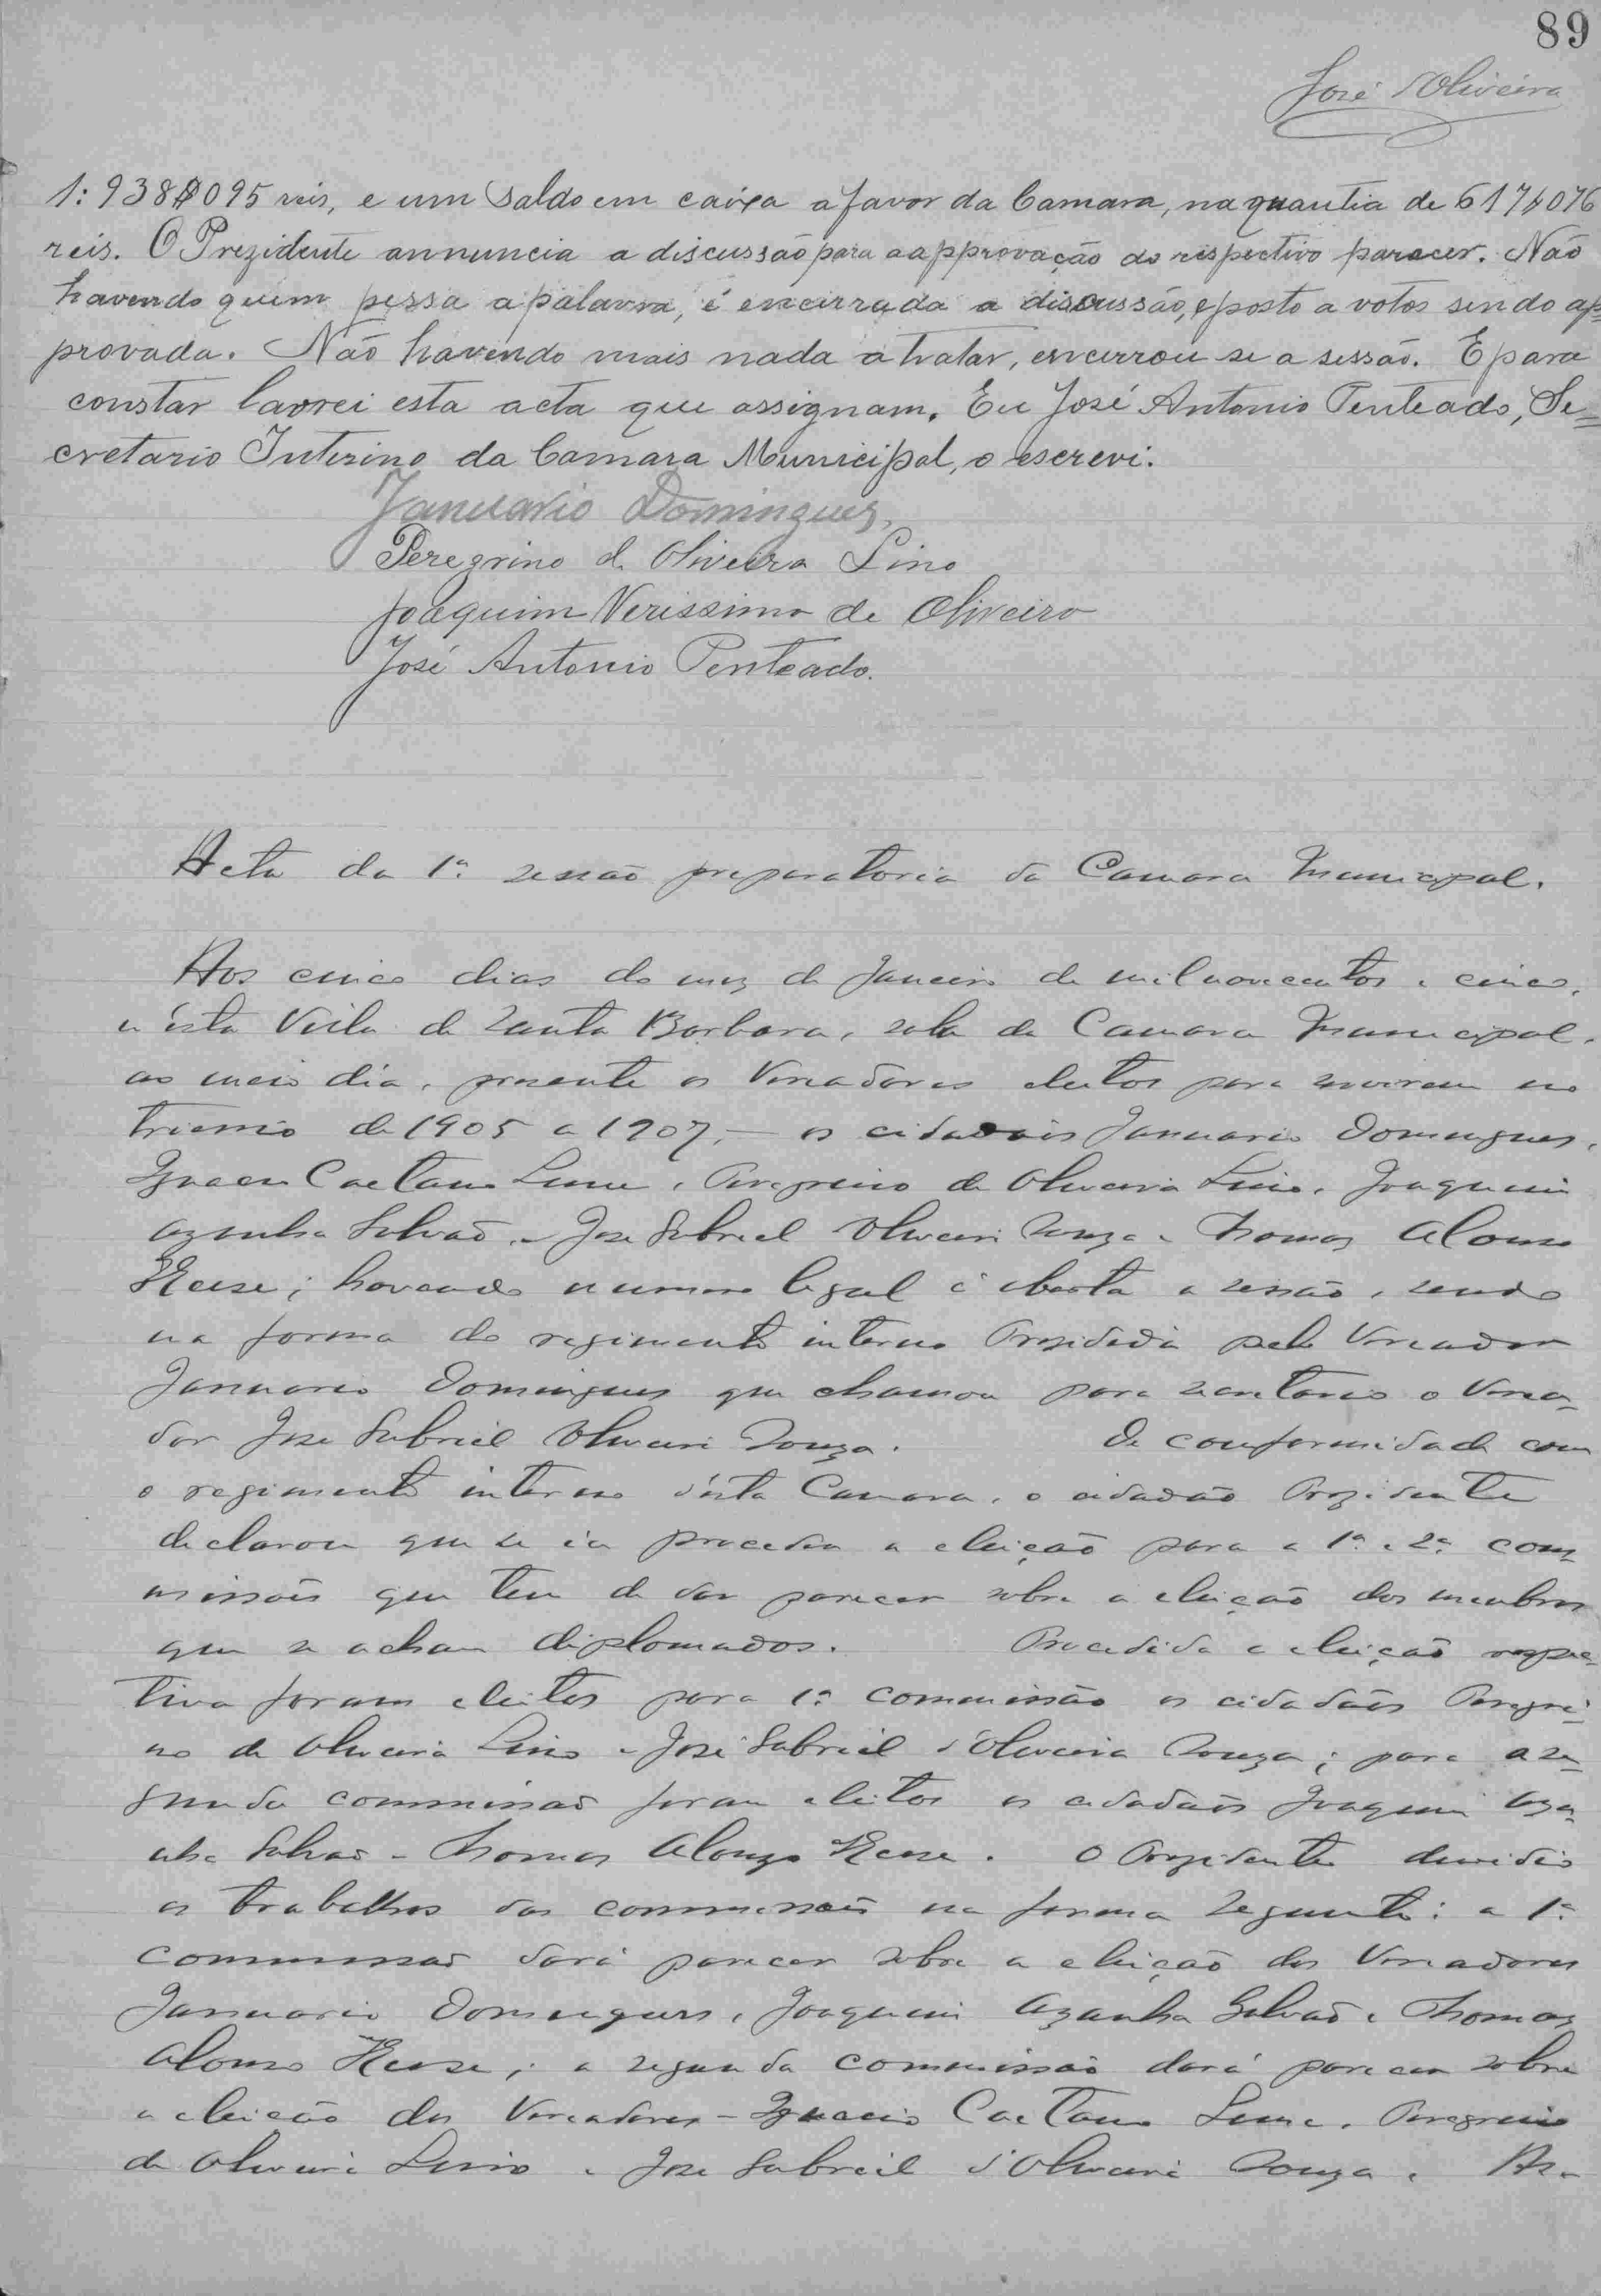 89
José d'Oliveira
1:938$095 reis, e um saldo em caixa a favor da Camara, na quantia de 617$076
reis. O Prezidente annuncia a discussão para a approvação do respectivo parecer. Não
havendo quem pessa a palavra, é encerrada a discussão, e posto a votos sendo ap=
provada. Não havendo mais nada a tratar, encerrou se a sessão. E para
constar lavrei esta acta que assignam. Eu José Antonio Penteado, Se=
cretario Interino da Camara Municipal, o escrevi.
Januario Domingues,
Peregrino d. Oliveira Lino
Joaquim Verissimo de Oliveira
José Antonio Penteado.
Acta da 1ª sessão preparatoria da Camara Municipal.
Aos cinco dias do mez de Janeiro de mil novecentos e cinco,
n'esta Villa de Santa Barbara, sala da Camara Municipal,
ao meio dia, presente os Vereadores eleitos para servirem no
triennio de 1905 a 1907, — os cidadãos Januario Domingues,
Ignacio Caetano Leme, Peregrino de Oliveira Lino, Joaquim
Azanha Galvão, e José Gabriel Oliveira Souza e Thomaz Alonso
Keese; havendo numero legal é aberta a sessão, sendo
na forma do regimento interno Prezidida pelo Vereador
Januario Domingues que chamou para secretario o Verea-
dor José Gabriel Oliveira Souza. De conformidade com
o regimento interno d'esta Camara, o cidadão Prezidente
declarou que se ia proceder a eleição para a 1ª e 2ª com-
missões que tem de dar parecer sobre a eleição dos membros
que se acham diplomados. Procedida a eleição respec-
tiva foram eleitos para 1ª commissão os cidadãos Peregri-
no de Oliveira Lino e José Gabriel d'Oliveira Souza; para a se-
gunda commissão foram eleitos os cidadãos Joaquim Aza-
nha Galvão e Thomaz Alonzo Keese. O Prezidente dividio
os trabalhos das commissões na forma seguinte: a 1ª
commissão dará parecer sobre a eleição dos Vereadores
Januario Domingues, Joaquim Azanha Galvão e Thomaz
Alonso Keese; a segunda commissão dará parecer sobre
a eleição dos Vereadores — Ignacio Caetano Leme, Peregrino
de Oliveira Lino e José Gabriel d'Oliveira Souza.